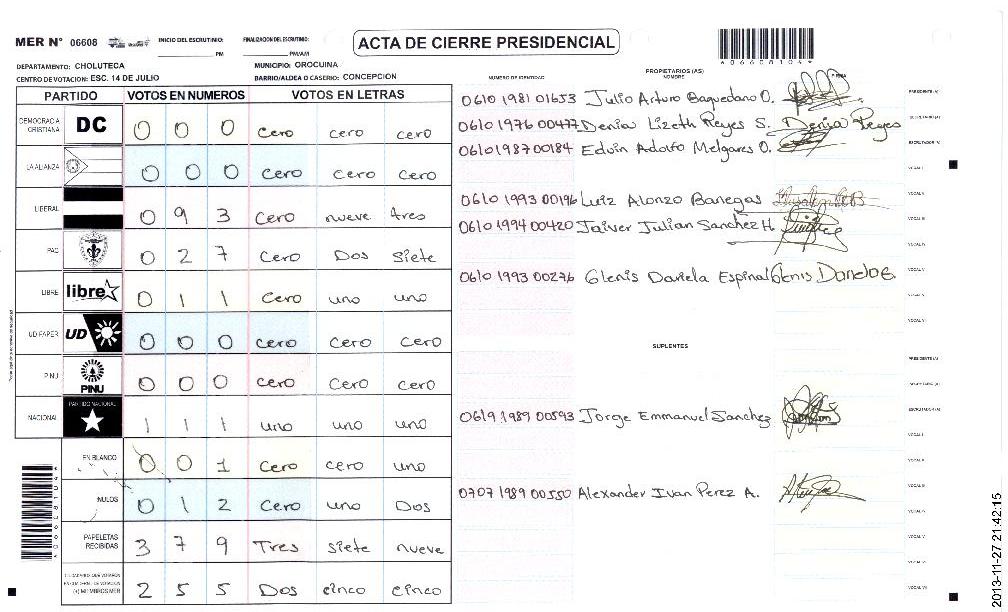 MER Nº 06608
INICIO DEL ESCRUTINIO:
PM
FINALIZACION DEL ESCRUTINIO:
PM/AM
ACTA DE CIERRE PRESIDENCIAL
DEPARTAMENTO: CHOLUTECA
MUNICIPIO: OROCUINA
CENTRO DE VOTACION: ESC. 14 DE JULIO
BARRIO/ALDEA O CASERIO: CONCEPCION
PARTIDO VOTOS EN NUMEROS VOTOS EN LETRAS
DEMOCRACIA CRISTIANA DC 0 0 0 cero cero cero
LA ALIANZA 0 0 0 cero cero cero
LIBERAL 0 9 3 cero nueve tres
PAC 0 2 7 cero Dos siete
LIBRE libre 0 1 1 cero uno uno
UD FAPER UD 0 0 0 cero cero cero
PINU PINU 0 0 0 cero cero cero
NACIONAL PARTIDO NACIONAL 1 1 1 uno uno uno
EN BLANCO 0 0 1 cero cero uno
NULOS 0 1 2 cero uno Dos
PAPELETAS RECIBIDAS 3 7 9 Tres siete nueve
2 5 5 Dos cinco cinco
NUMERO DE IDENTIDAD
PROPIETARIOS (AS)
NOMBRE
FIRMA
0610 1981 01653 Julio Arturo Baquedano O.
PRESIDENTE (A)
0610 1976 00477 Denia Lizeth Reyes S. Denia Reyes
SECRETARIO (A)
0610 1987 00184 Edwin Adolfo Melgares O.
ESCRUTADOR (A)
VOCAL I
0610 1993 00196 Luiz Alonzo Banegas
VOCAL II
0610 1994 00420 Jaiver Julian Sanchez H.
VOCAL III
VOCAL IV
0610 1993 00276 Glenis Dariela Espinal
VOCAL V
VOCAL VI
VOCAL VII
SUPLENTES
PRESIDENTE (A)
SECRETARIO (A)
0619 1989 00593 Jorge Emmanuel Sanchez
ESCRUTADOR (A)
VOCAL I
VOCAL II
0707 1989 00550 Alexander Ivan Perez A.
VOCAL III
VOCAL IV
VOCAL V
VOCAL VI
VOCAL VII
2013-11-27 21:42:15